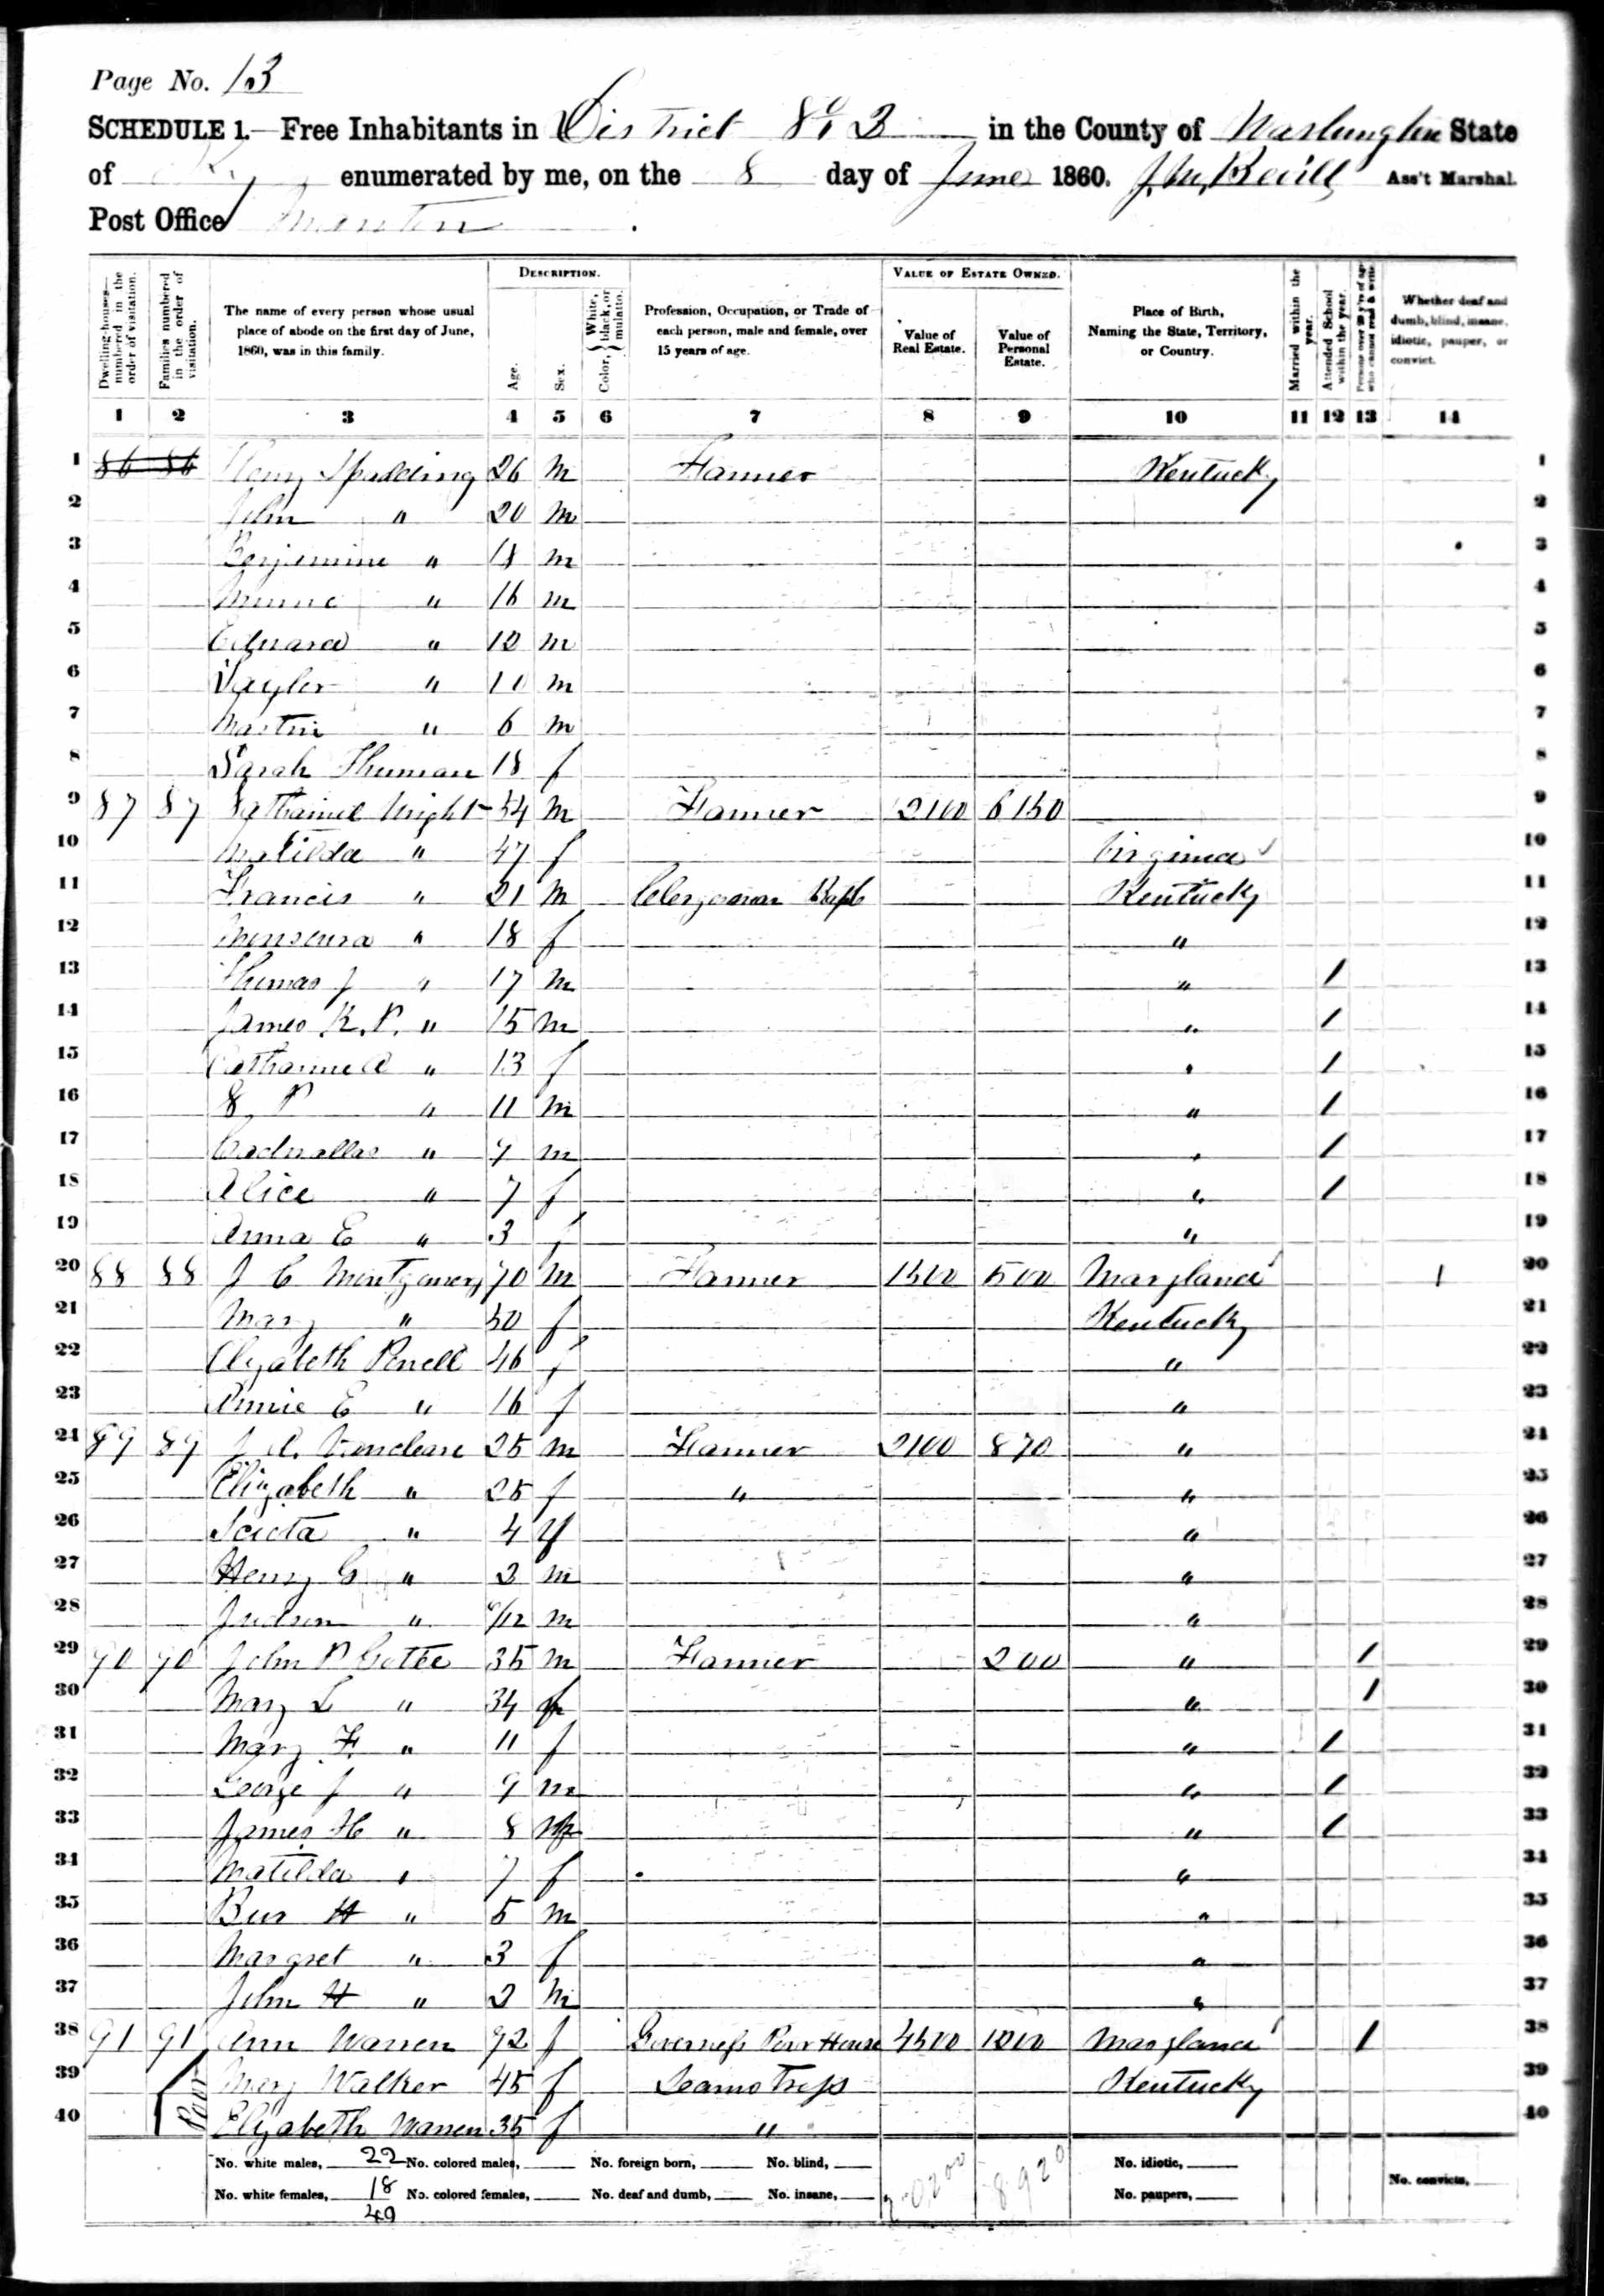 Page No. 13
SCHEDULE 1.—Free Inhabitants in District No 2 in the County of Washington State
of Ky enumerated by me, on the 8 day of June 1860. Ass't Marshal.
Post Office
DESCRIPTION. VALUE OF ESTATE OWNED.
Dwelling-houses—numbered in the order of visitation. Families numbered in the order of visitation. The name of every person whose usual place of abode on the first day of June, 1860, was in this family. Age. Sex. Color, {White, black, or mulatto. Profession, Occupation, or Trade of each person, male and female, over 15 years of age. Value of Real Estate. Value of Personal Estate. Place of Birth, Naming the State, Territory, or Country. Married within the year. Attended School within the year. Persons over 20 y'rs of age who cannot read & write. Whether deaf and dumb, blind, insane, idiotic, pauper, or convict.
1 2 3 4 5 6 7 8 9 10 11 12 13 14
1 86 86 Henry Spalding 26 m Farmer Kentucky 1
2 John " 20 m 2
3 Benjamine " 18 m 3
4 " 16 m 4
5 Edward " 12 m 5
6 Taylor " 10 m 6
7 Martin " 6 m 7
8 Sarah Thurman 18 f 8
9 87 87 Nathaniel Wright 54 m Farmer 2100 6150 9
10 Matilda " 47 f Virginia 10
11 Francis " 21 m Clergyman Bapt Kentucky 11
12 " 18 f " 12
13 Thomas J " 17 m " / 13
14 James K. P. " 15 m " / 14
15 Catharine A " 13 f " / 15
16 S. P " 11 m " / 16
17 " 9 m " / 17
18 Alice " 7 f " / 18
19 Anna E " 3 f " 19
20 88 88 J C Montgomery 70 m Farmer 1500 500 Maryland 1 20
21 Mary " 50 f Kentucky 21
22 Elizabeth 46 f " 22
23 Annie E " 16 f " 23
24 89 89 J A 25 m Farmer 2100 870 " 24
25 Elizabeth " 25 f " " 25
26 " 4 f " 26
27 Henry G " 2 m " 27
28 Judson " /12 m " 28
29 90 90 John P 35 m Farmer 200 " / 29
30 Mary L " 34 f " / 30
31 Mary F. " 11 f " / 31
32 George J " 9 m " / 32
33 James H " 8 m " / 33
34 Matilda " 7 f " 34
35 Ben H " 5 m " 35
36 Margret " 3 f " 36
37 John H " 2 m " 37
38 91 91 Ann Warren 72 f Governess Poor House 4500 1200 Maryland / 38
39 Mary Walker 45 f Seamstress Kentucky 39
40 Poor Elizabeth Warren 35 f " 40
No. white males, 22 No. colored males, No. foreign born, No. blind, No. idiotic,
No. white females, 18 No. colored females, No. deaf and dumb, No. insane, No. paupers, No. convicts,
40
8920